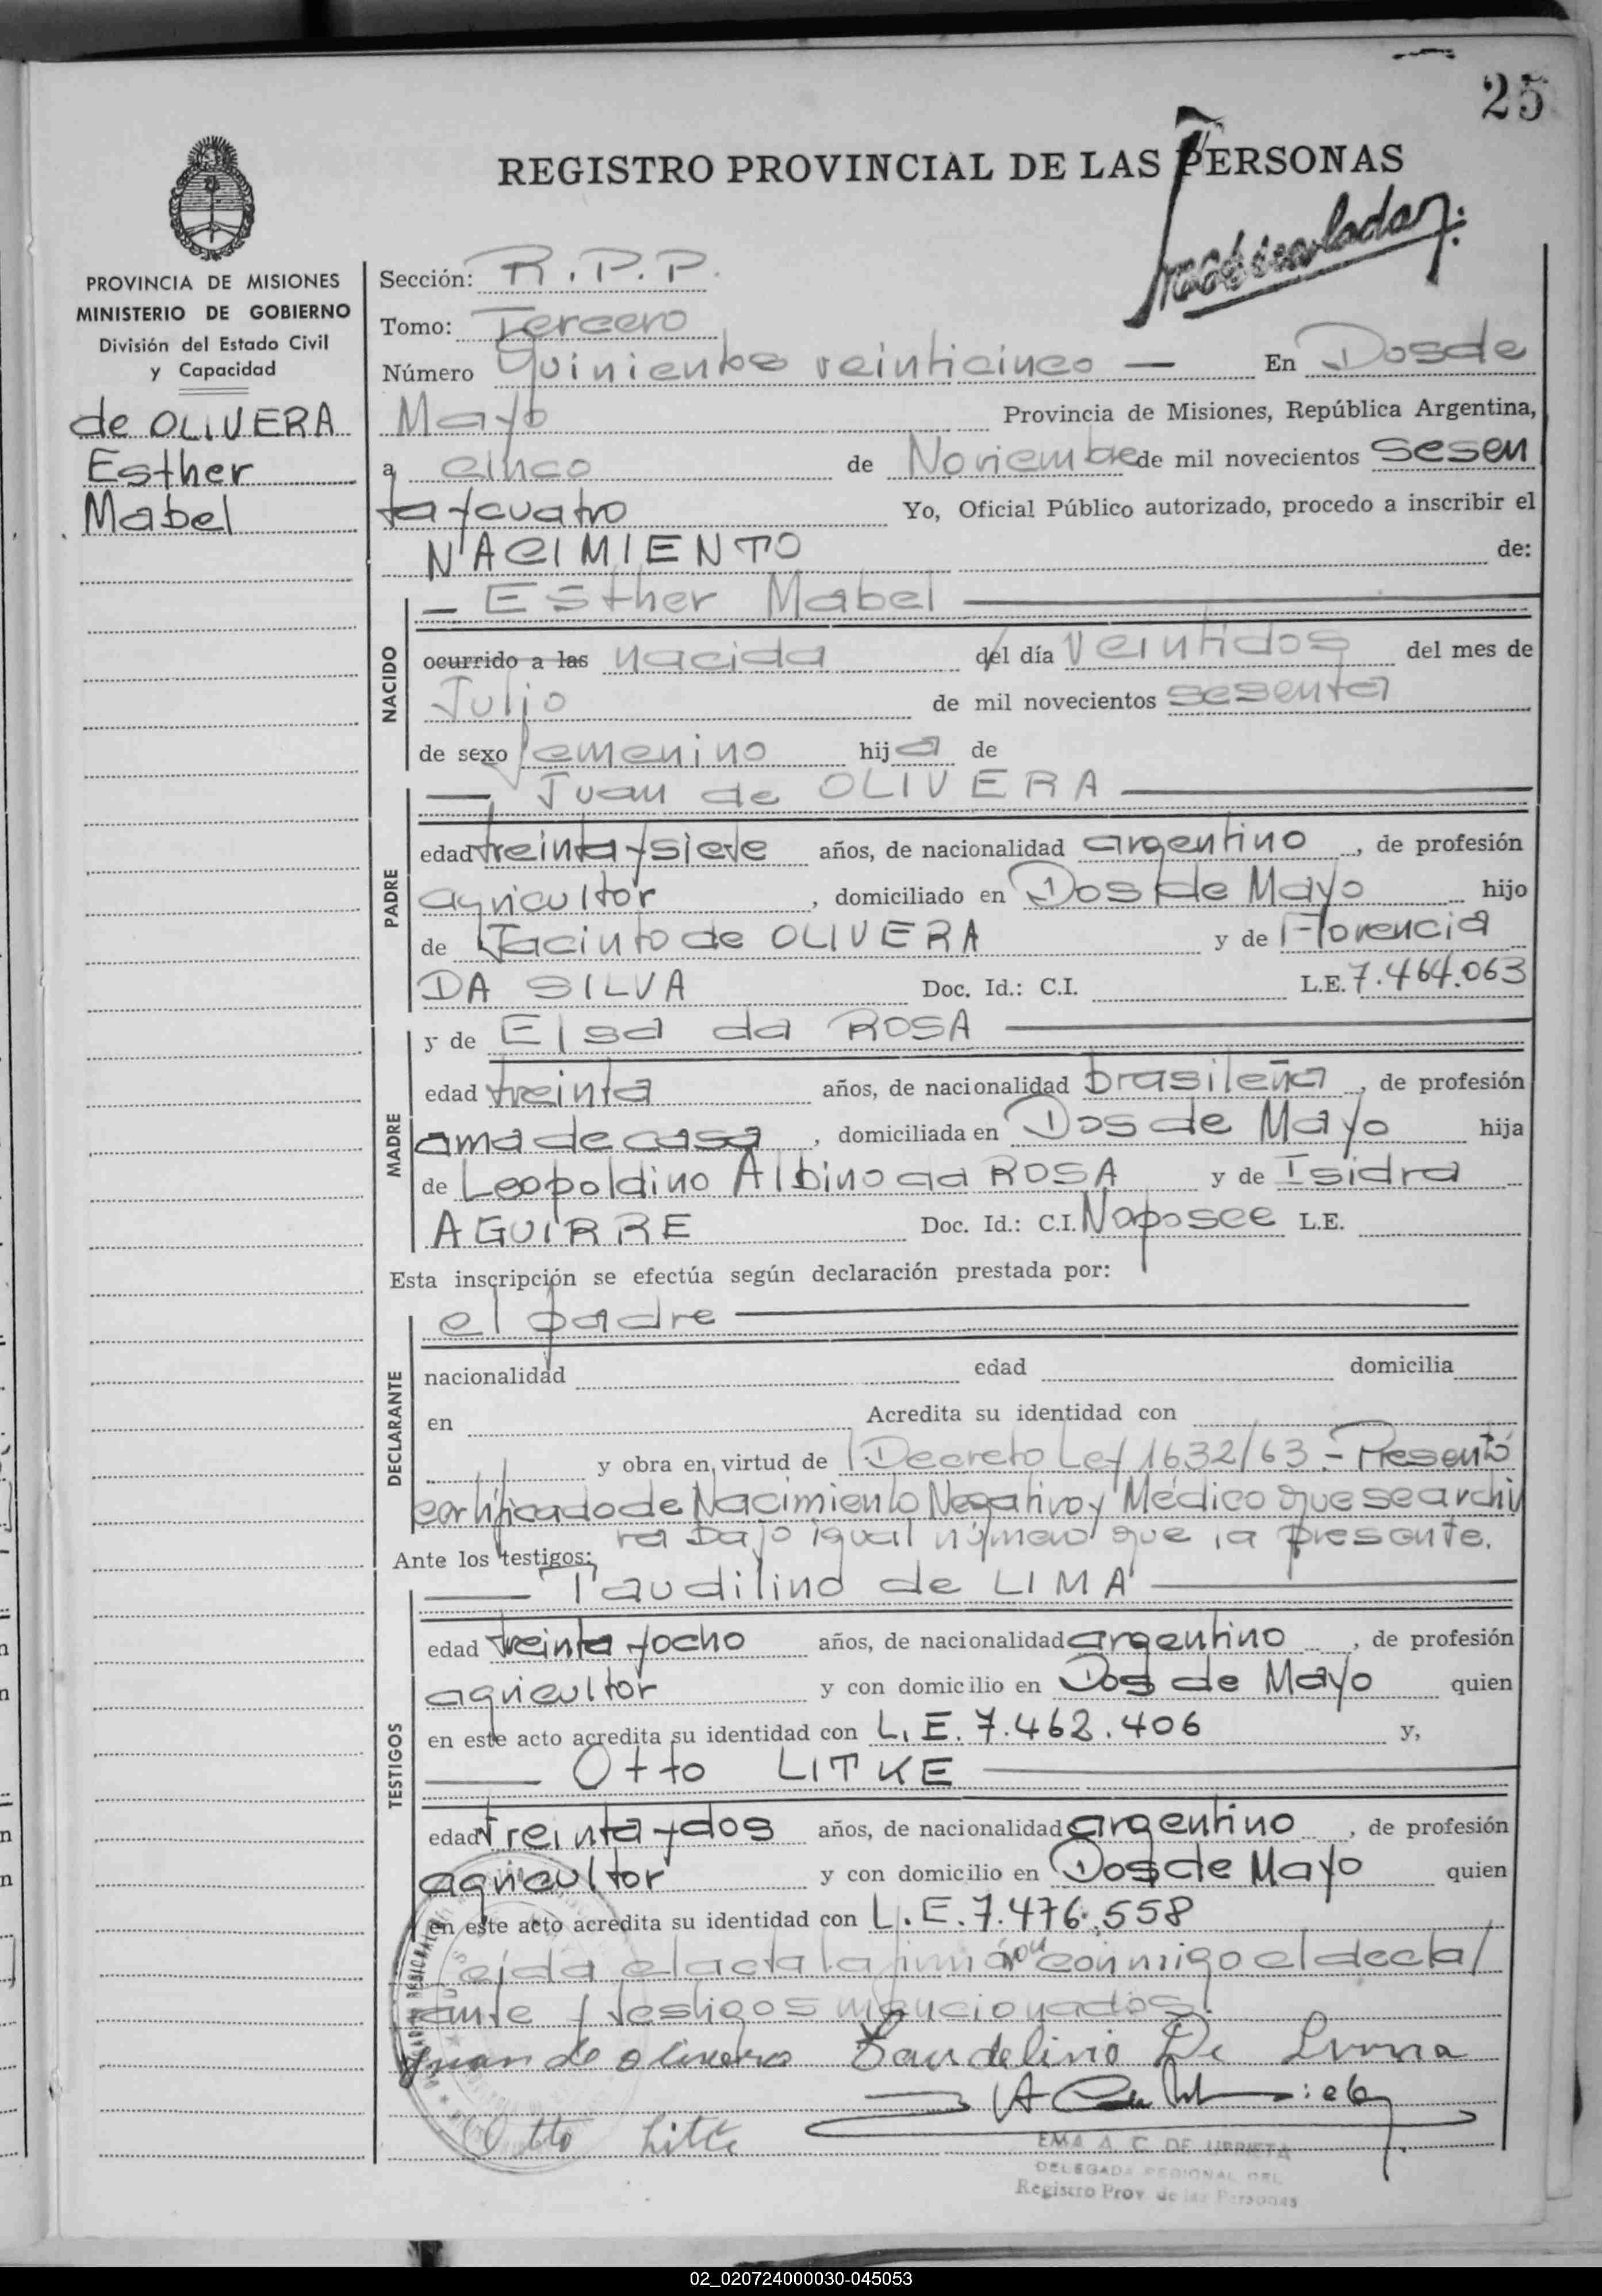 25
REGISTRO PROVINCIAL DE LAS PERSONAS
PROVINCIA DE MISIONES
MINISTERIO DE GOBIERNO
División del Estado Civil
y Capacidad
de OLIVERA
Esther
Mabel
Sección: R.P.P.
Tomo: Tercero
Número Quinientos veinticinco — En Dos de
Mayo Provincia de Misiones, República Argentina,
a cinco de Noviembre de mil novecientos sesen
ta y cuatro Yo, Oficial Público autorizado, procedo a inscribir el
NACIMIENTO de:
NACIDO
— Esther Mabel —
ocurrido a las nacida del día veintidos del mes de
Julio de mil novecientos sesenta
de sexo femenino hija de
PADRE
— Juan de OLIVERA —
edad treinta y siete años, de nacionalidad argentino, de profesión
agricultor, domiciliado en Dos de Mayo hijo
de Jacinto de OLIVERA y de Florencia
DA SILVA Doc. Id.: C.I. L.E. 7.464.063
MADRE
y de Elsa da ROSA —
edad treinta años, de nacionalidad brasileña, de profesión
ama de casa, domiciliada en Dos de Mayo hija
de Leopoldino Albino da ROSA y de Isidra
AGUIRRE Doc. Id.: C.I. No posee L.E.
Esta inscripción se efectúa según declaración prestada por:
DECLARANTE
el padre —
nacionalidad edad domicilia
en Acredita su identidad con
y obra en virtud de Decreto Ley 1632/63.- Presentó
certificado de Nacimiento Negativo y Médico que se archi
ra bajo igual número que la presente.
Ante los testigos:
TESTIGOS
— Taudilino de LIMA —
edad treinta y ocho años, de nacionalidad argentino, de profesión
agricultor y con domicilio en Dos de Mayo quien
en este acto acredita su identidad con L.E. 7.462.406 y,
— Otto LITKE —
edad treinta y dos años, de nacionalidad argentino, de profesión
agricultor y con domicilio en Dos de Mayo quien
en este acto acredita su identidad con L.E. 7.476.558
Leída el acta la firmaron conmigo el decla/
rante y testigos mencionados.
Juan de olivera Taudelino De Lima
Otto Litke
EMA A. C. DE URRIETA
DELEGADA REGIONAL DEL
Registro Prov. de las Personas
02_020724000030-045053